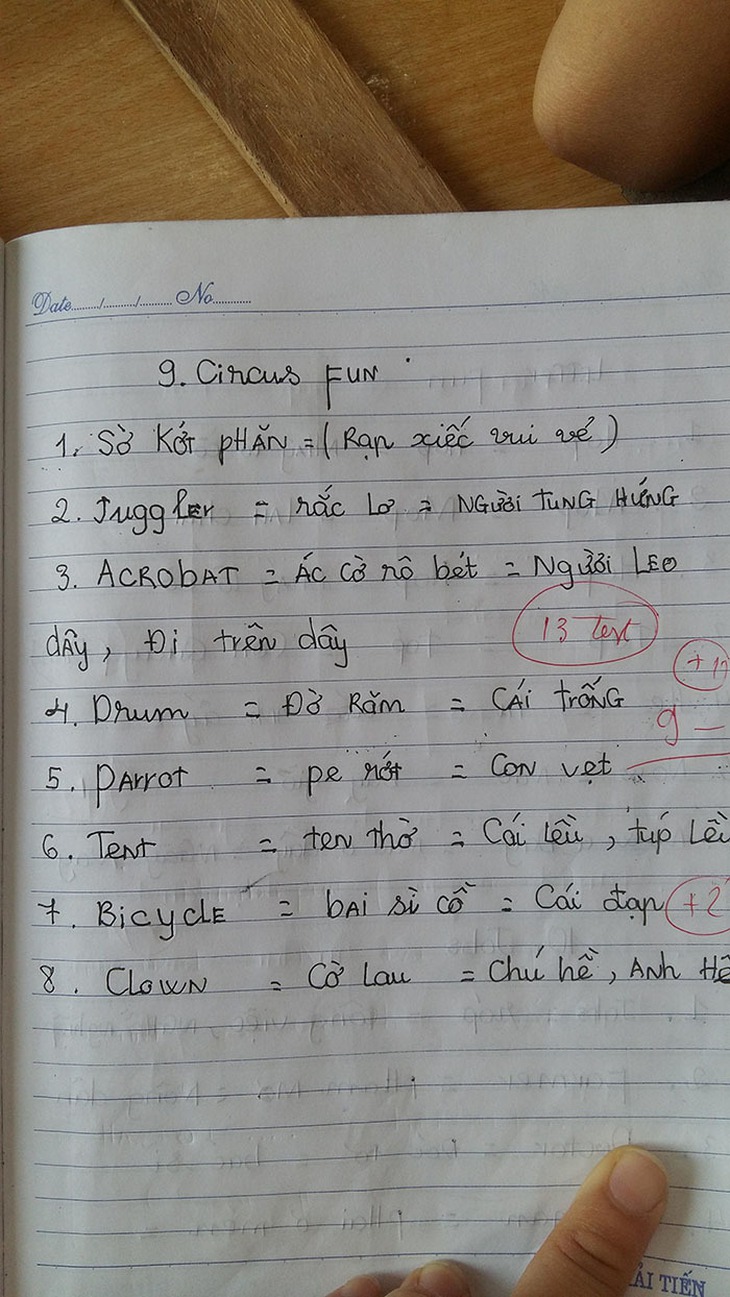 Date......./......./....... No..........
9. Circus FUN
1. Sờ Kớt pHĂN = (Rạp xiếc vui vẻ)
2. Juggler = rắc Lơ = NGười TUNG HứNG
3. ACRObAT = Ác cờ rô bét = Người LEO
dÂy, Đi trên dây
13 Test
4. Drum = Đờ Răm = CÁi TrỐNG
9 –
5. pArrot = pe rớt = CoN vẹt
6. TENT = ten thờ = Cái lều, túp Lều
7. BicycLE = bAi sì cồ = Cái đạp +2
8. CLOWN = Cờ Lau = Chú hề, ANH HỀ
ẢI TIẾN